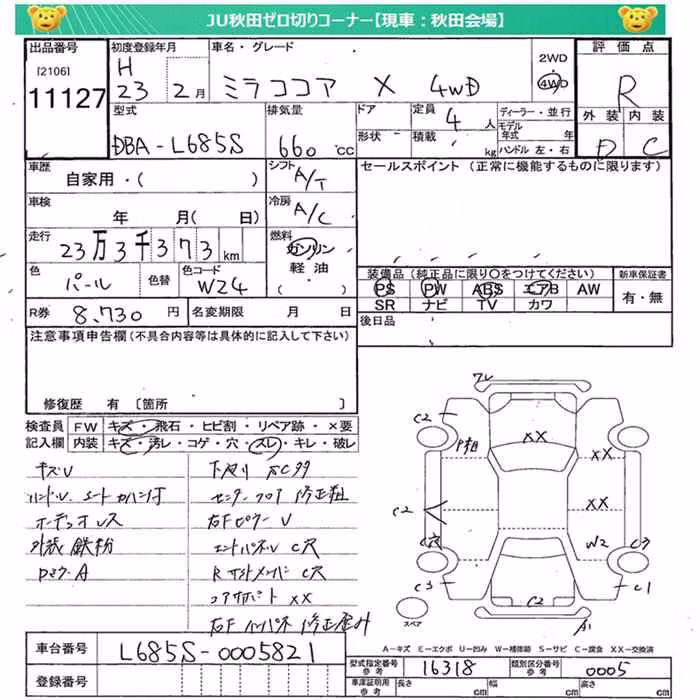 JU秋田ゼロ切りコーナー【現車：秋田会場】
出品番号 [2106] 11127
初度登録年月 H 23 2月
車名・グレード ミラココア X 4WD
2WD 4WD
評価点 R
外装 D 内装 C
型式 DBA-L685S
排気量 660 cc
ドア 形状
定員 4 人
積載 kg
ディーラー・並行
モデル年式 年
ハンドル 左・右
車歴 自家用・( )
シフト A/T
セールスポイント（正常に機能するものに限ります）
車検 年 月( 日)
冷房 A/C
走行 23万3千373km
燃料 ガソリン 軽油 ( )
色 パール 色替 色コード W24
装備品（純正品に限り○をつけてください） 新車保証書
PS PW ABS エアB AW 有・無
SR ナビ TV カワ
R券 8,730円 名変期限 月 日
後日品
注意事項申告欄（不具合内容等は具体的に記入して下さい）
修復歴 有 〔箇所 〕
検査員記入欄 FW キズ・飛石・ヒビ割・リペア跡・×要
内装 キズ・汚レ・コゲ・穴・スレ・キレ・破レ
キズU
ハンドル シートカバー付
オーディオレス
外装 鉄粉
ドロアーA
センターフロア 修正粗
右Fピラー U
エンドパネU C穴
Rサイドメンバー C穴
コアサポート XX
右F インパネ 修正歪み
フレ
C2
P粗
XX
XX
C2
XX
W2
C穴
C3
C3
C1
C2
A1
スペア
A－キズ E－エクボ U－凹み W－補修跡 S－サビ C－腐食 XX－交換済
車台番号 L685S-0005821
型式指定番号 参考 16318 類別区分番号 参考 0005
登録番号
車庫証明用 参考 長さ cm 幅 cm 高さ cm